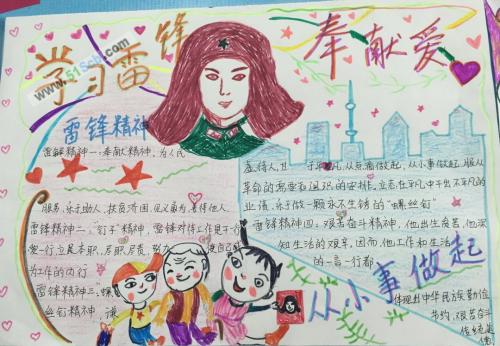 学习雷锋
奉献爱
www.51Sch
雷锋精神
雷锋精神一:奉献精神,为人民
服务,乐于助人,扶贫济困,见义勇为,善待他人
雷锋精神二:"钉子"精神,雷锋对待工作是干一行
爱一行,立足本职,尽职尽责
为工作的
雷锋精神三:螺
丝钉精神,谦
虚待人,甘于平凡,从点滴做起,从小事做起,服从
革命的需要和组织的安排,立志在平凡中干出不平凡的
业绩,乐于做一颗永不生锈的"螺丝钉"
雷锋精神四:艰苦奋斗精神,他出生疾苦,他深
知生活的艰辛,因而他工作和生活
的一言一行都
体现出中华民族勤俭
节约,艰苦奋斗
传统美
德
从小事做起